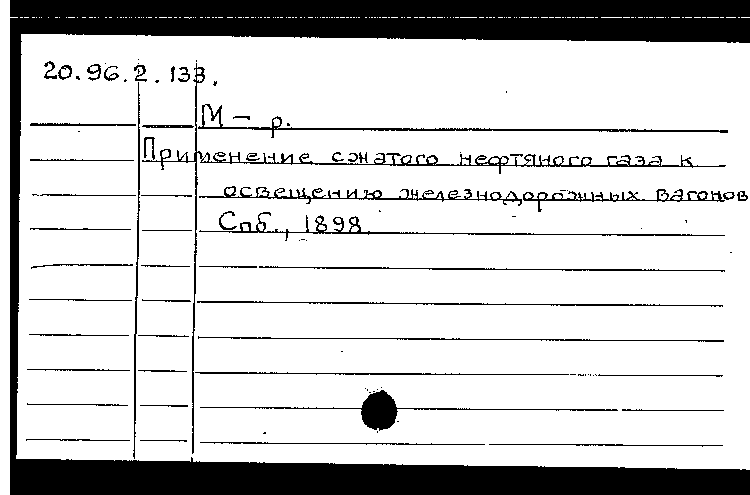 20.96.2.133.
М – р.
Применение сжатого нефтяного газа к
освещению железнодорожных вагонов
Спб., 1898.